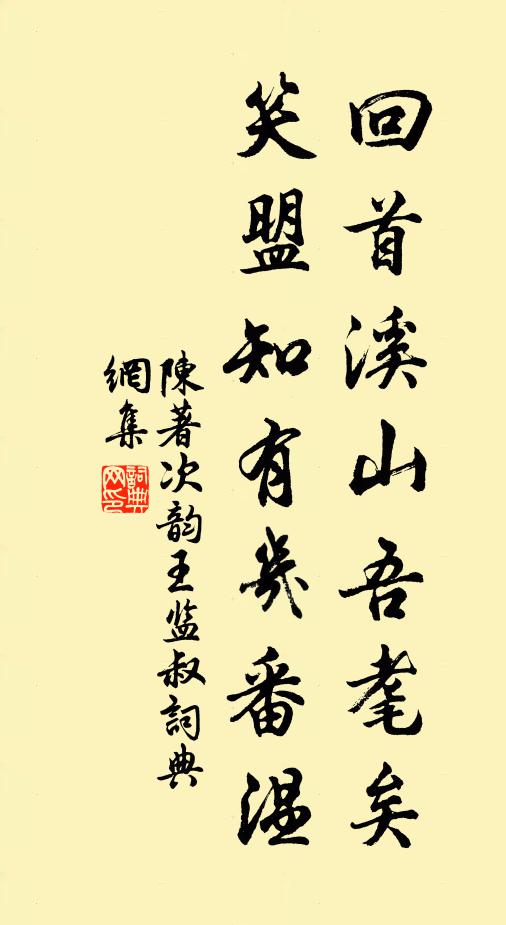 回首溪山吾耄矣
笑盟知有幾番温
陳著次韵王监叔詞典
網集
詞典网印